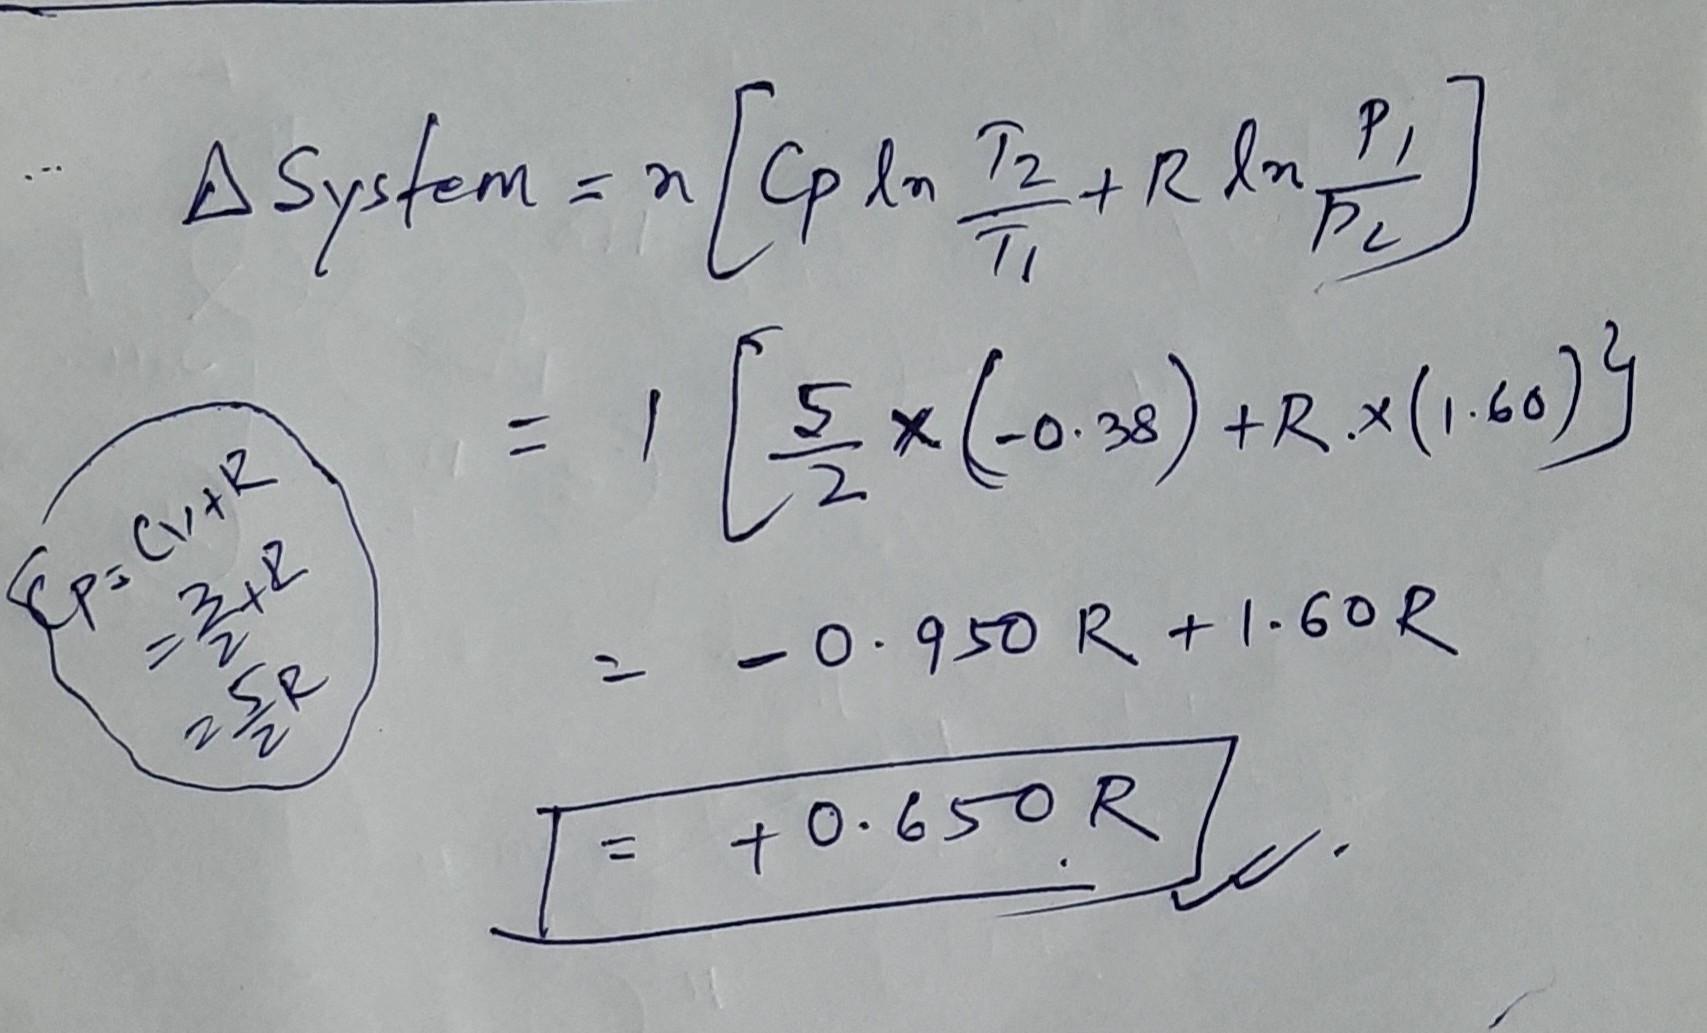 ... Δ System = n [ Cp ln T2/T1 + R ln P1/P2 ]
= 1 [ 5/2 × (-0.38) + R.×(1.60) }
Cp = Cv + R
= 3/2 + R
= 5/2 R
= -0.950 R + 1.60 R
= +0.650 R